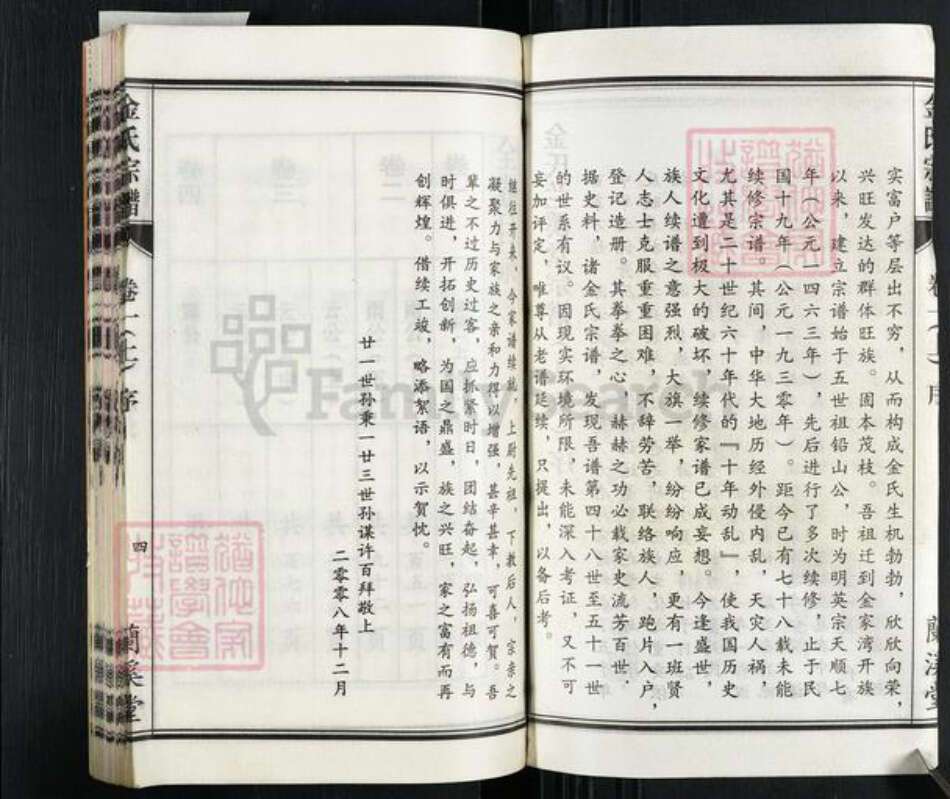 实富户等层出不穷，从而构成金氏生机勃勃，欣欣向荣，
兴旺发达的群体旺族。固本茂枝。吾祖迁到金家湾开族
以来，建立宗谱始于五世祖铅山公，时为明英宗天顺七
年（公元一四六三年），先后进行了多次续修，止于民
国十九年（公元一九三零年）。距今已有七十八载未能
续修宗谱。其间，中华大地历经外侵内乱，天灾人祸，
尤其是二十世纪六十年代的『十年动乱』，使我国历史
文化遭到极大的破坏，续修家谱已成妄想。今逢盛世，
族人续谱之意强烈，大旗一举，纷纷响应，更有一班贤
人志士克服重重困难，不辞劳苦，联络族人，跑片入户，
登记造册。其拳拳之心，赫赫之功必载家史流芳百世。
据史料，诸金氏宗谱，发现吾谱第四十八世至五十一世
的世系有议。因现实环境所限，未能深入考证，又不可
妄加评定，唯尊从老谱延续，只提出，以备后考。
继往开来，今家谱续就，上尉先祖，下教后人，宗亲之
凝聚力与家族之亲和力得以增强，甚幸甚幸，可喜可贺。吾
辈之不过历史过客，应抓紧时日，团结奋起，弘扬祖德，与
时俱进，开拓创新，为国之鼎盛，族之兴旺，家之富有而再
创辉煌。借续工竣，略添絮语，以示贺忱。
廿一世孙秉一廿三世孙谋许百拜敬上
二零零八年十二月
金氏宗譜
卷一（上）序
四
蘭溪堂
金氏宗譜
蘭溪堂
FamilySearch